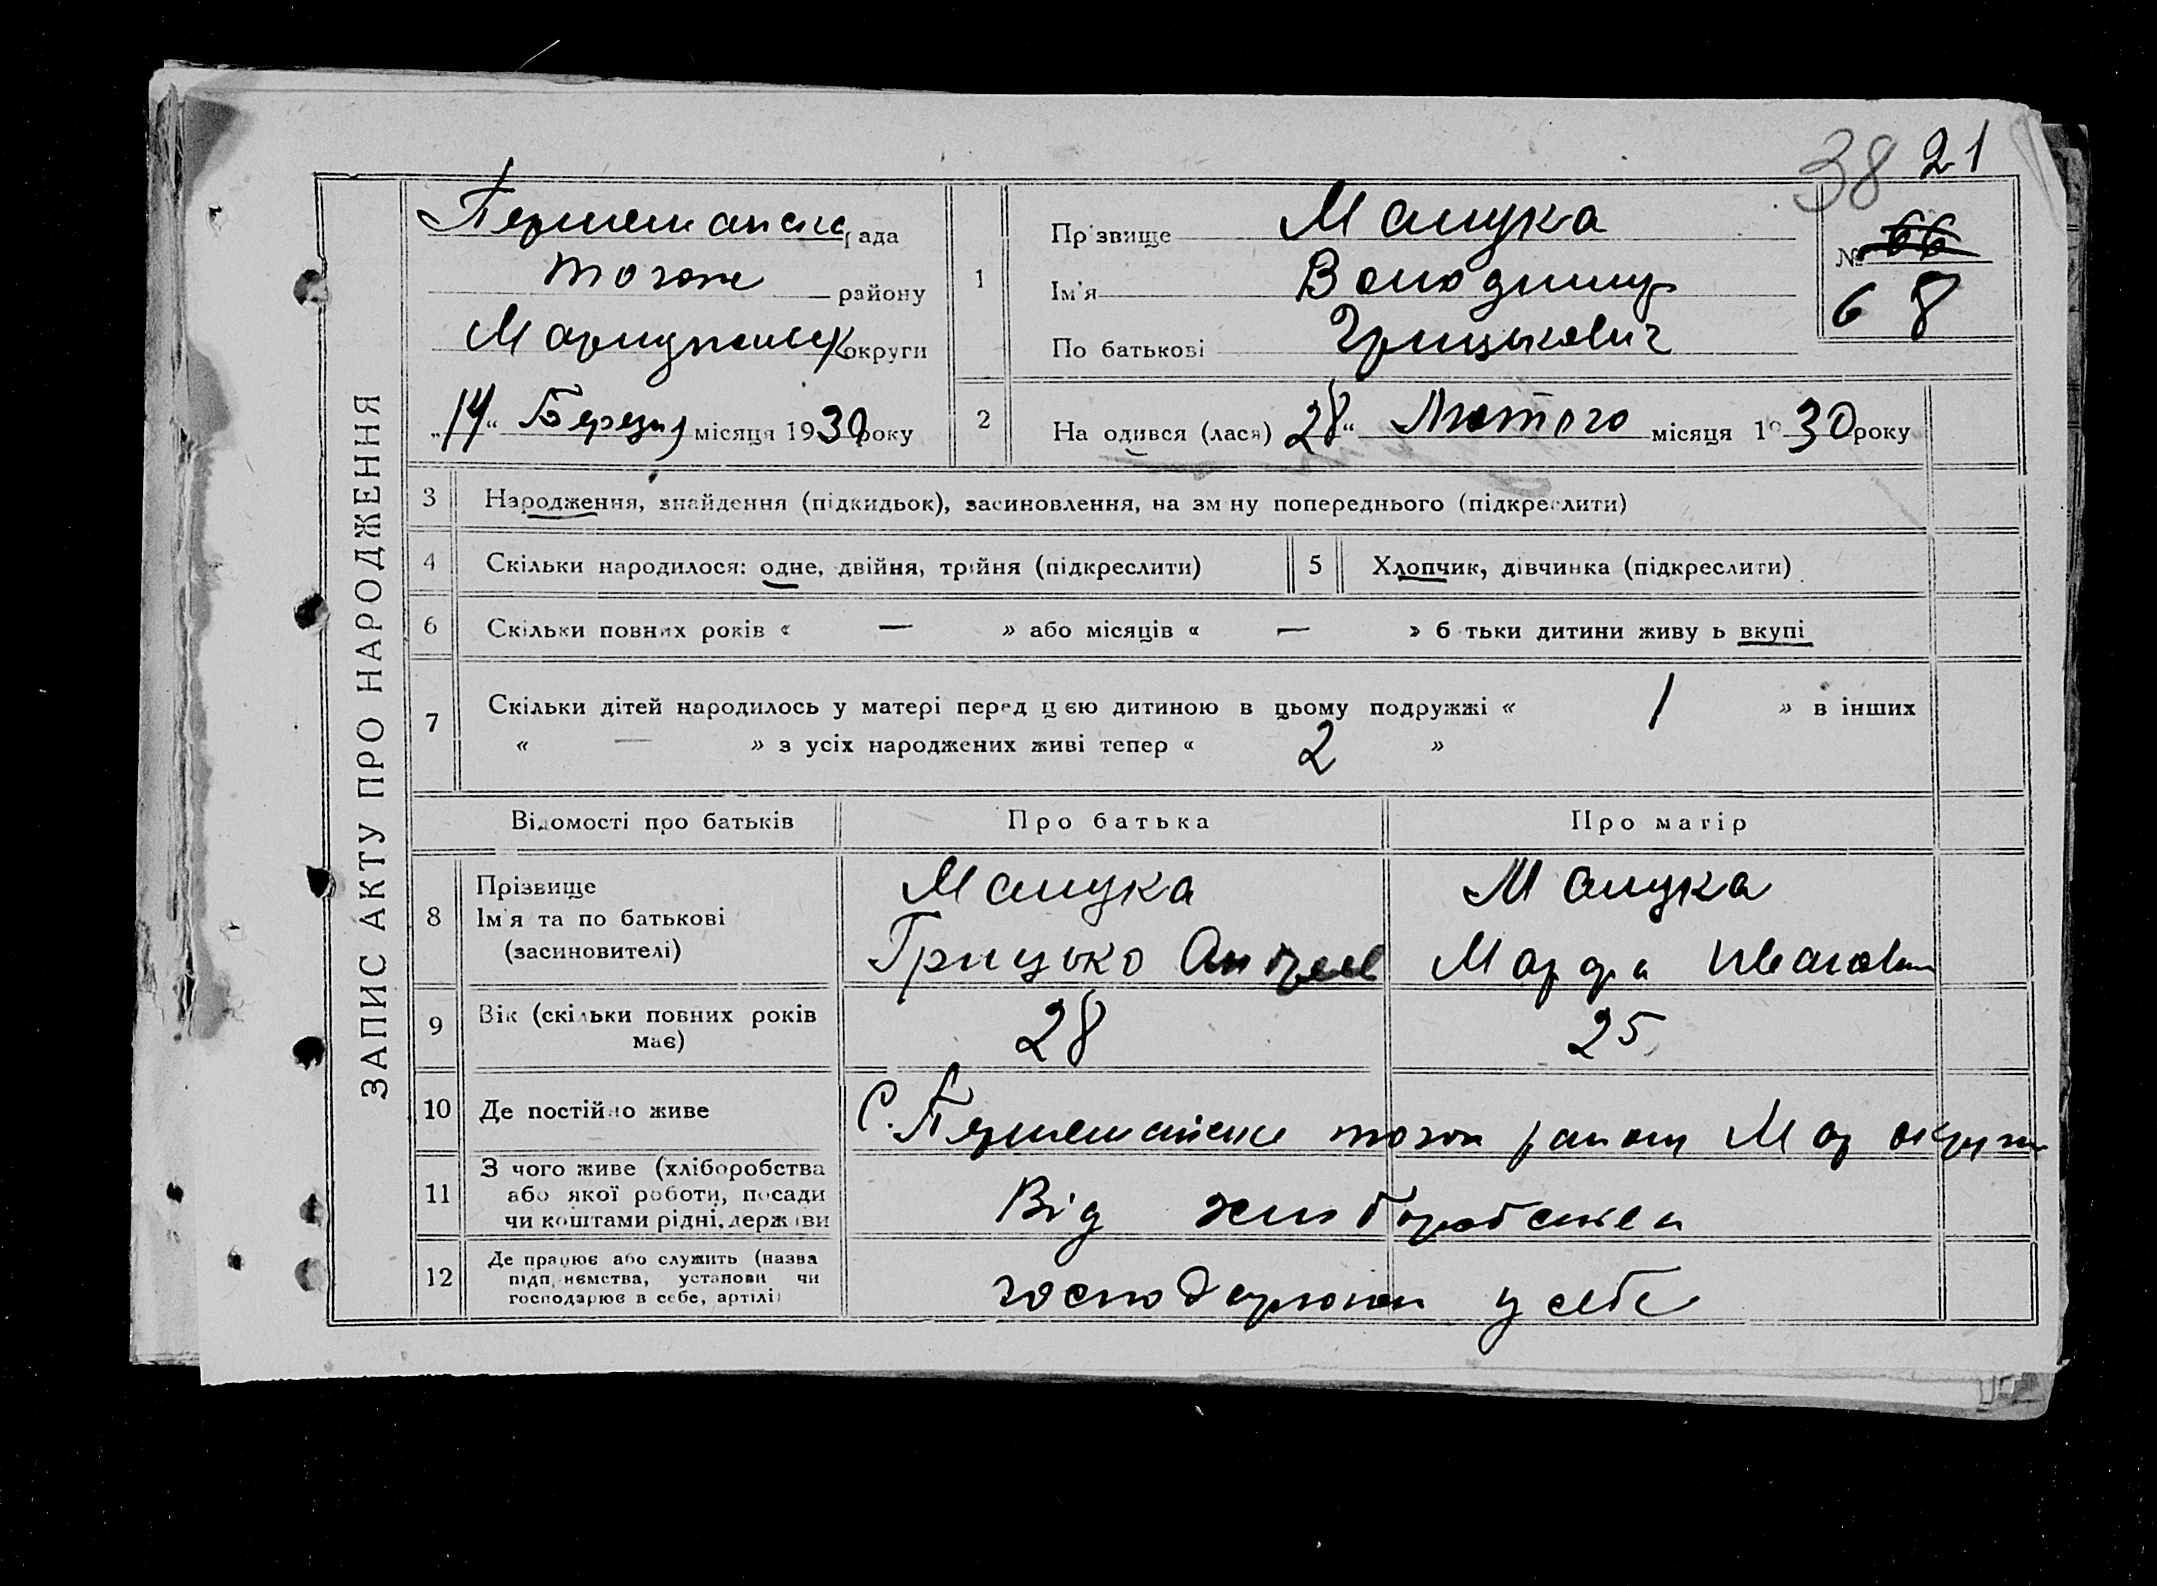 38 21
ЗАПИС АКТУ ПРО НАРОДЖЕННЯ
Першемайська рада
тогож району
Маріупольськ округи
„14“ Березня місяця 1930 року
1
Прізвище Мащука
Ім'я Володимир
По батькові Грицькович
№ 66
68
2 На одився (лася) 28“ Лютого місяця 1930 року
3 Народження, знайдення (підкидьок), засиновлення, на зм ну попереднього (підкреслити)
4 Скільки народилося: одне, двійня, трійня (підкреслити)
5 Хлопчик, дівчинка (підкреслити)
6 Скільки повних років « — » або місяців « — » б тьки дитини живу ь вкупі
7 Скільки дітей народилось у матері перед цєю дитиною в цьому подружжі « 1 » в інших
« — » з усіх народжених живі тепер « 2 »
Відомості про батьків Про батька Про матір
8 Прізвище
Ім'я та по батькові
(засиновителі)
Мащука
Грицько
Мащука
Марфа Іванов
9 Вік (скільки повних років
має)
28 25
10 Де постійно живе
С. Першемайське тогож району Мар округи
11 З чого живе (хліборобства
або якої роботи, посади
чи коштами рідні, держави
Від хліборобства
12 Де працює або служить (назва
підп иємства, установи чи
господарює в себе, артілі)
у себе